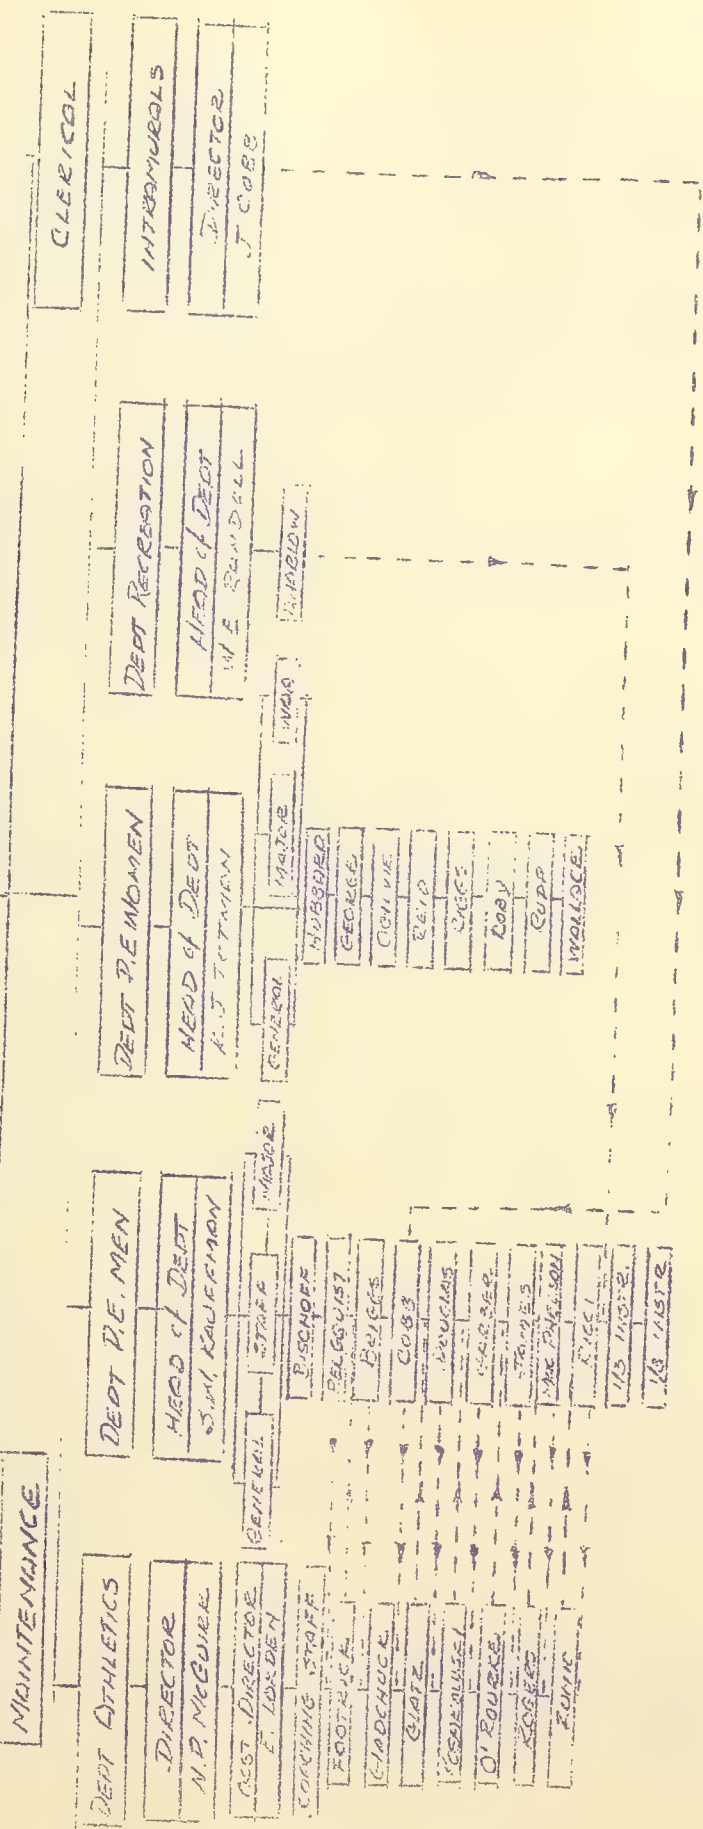 MAINTENANCE
CLERICAL
DEPT ATHLETICS
DIRECTOR
N.P. McGUIRK
ASST. DIRECTOR
E. LORDEN
COACHING STAFF
FOOTRICK
GLADCHUCK
GLATZ
KOSAKOWSKI
O'ROURKE
ROGERS
ZUNIC
DEPT P.E. MEN
HEAD of DEPT
S.M. KAUFFMAN
GENERAL
STAFF
MAJOR
BISCHOFF
BERGQUIST
BRIGGS
COBB
DOUGLAS
GARBER
JAMES
MacPHERSON
RICCI
1/3 INSTR.
1/3 INSTR.
DEPT P.E WOMEN
HEAD of DEPT
R. J TOTMAN
GENERAL
MAJOR
W.A.A
HUBBARD
GEORGE
OGILVIE
REID
RIGGS
ROBY
RUPP
WALLACE
DEPT RECREATION
HEAD of DEPT
W E RANDALL
INTRAMURALS
DIRECTOR
J COBB